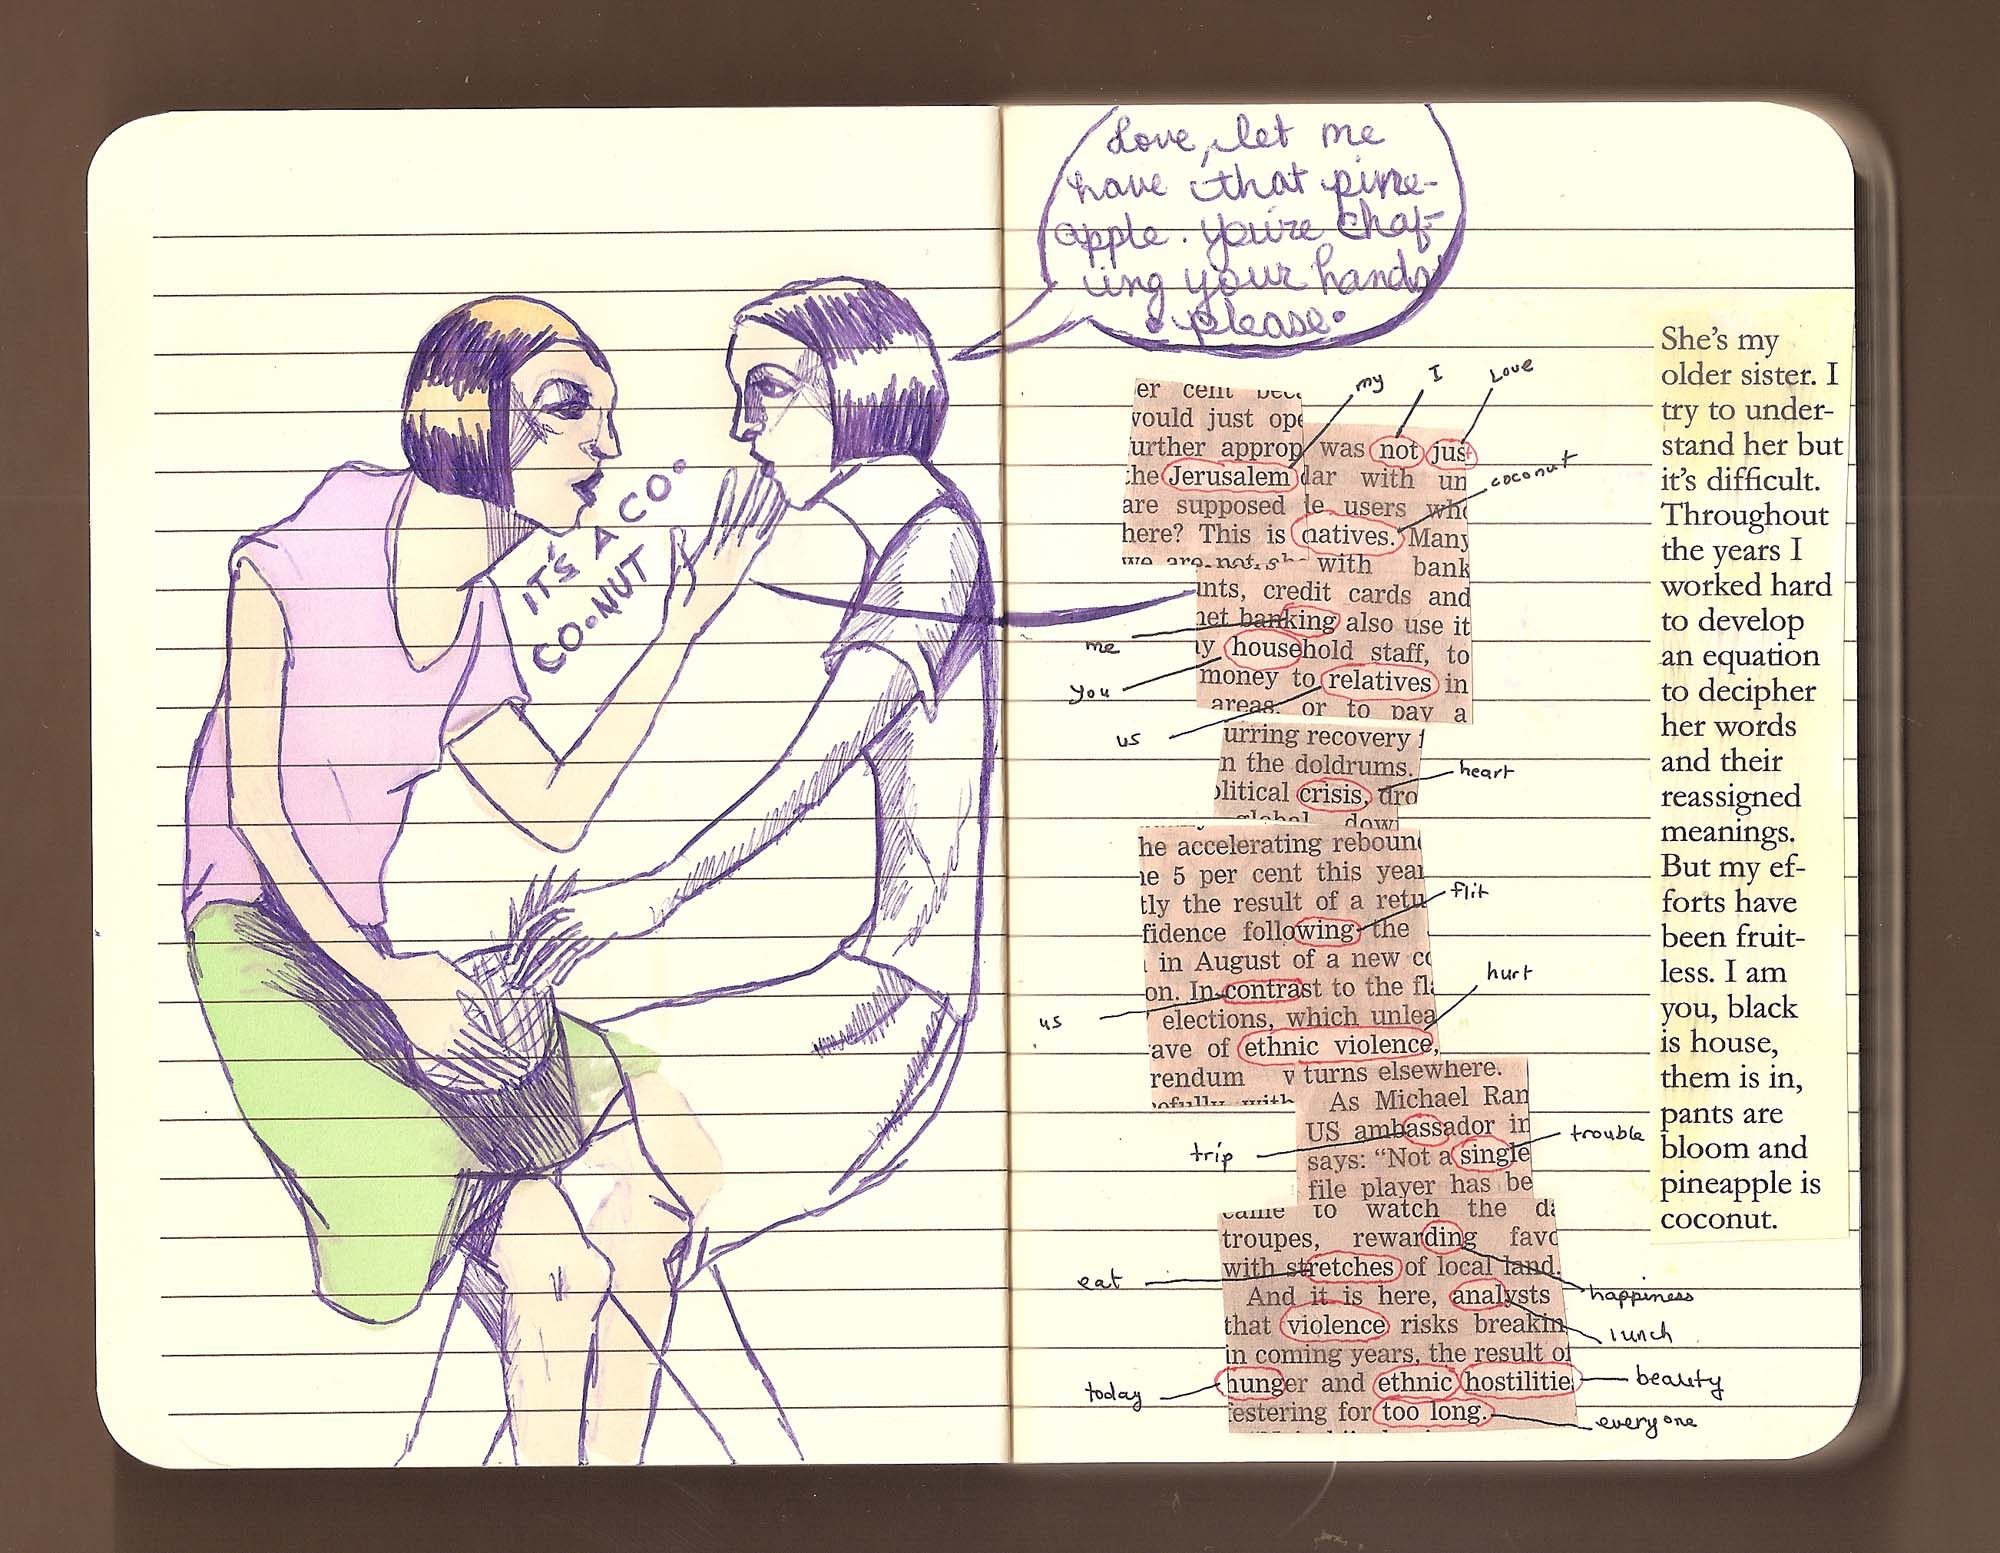 Love, let me
have that pine-
apple. you're chaf-
ing your hands
please.
IT'S A CO-
CO-NUT
my
I
Love
coconut
er cent bec
would just ope
urther approp
the Jerusalem
are supposed
here? This is
we are not sh
was not just
dar with un
le users who
natives. Many
with bank
nts, credit cards and
net banking also use it
y household staff, to
money to relatives in
areas, or to pay a
me
you
us
urring recovery f
n the doldrums.
olitical crisis, dro
global down
heart
he accelerating reboun
ne 5 per cent this year
tly the result of a retu
fidence following the
in August of a new co
on. In contrast to the fla
elections, which unlea
ave of ethnic violence,
rendum v
opefully with
flit
hurt
us
turns elsewhere.
As Michael Ran
US ambassador in
says: "Not a single
file player has be
trip
trouble
came to watch the da
troupes, rewarding favo
with stretches of local land.
And it is here, analysts
that violence risks breakin
in coming years, the result of
hunger and ethnic hostilitie
festering for too long.
eat
happiness
lunch
today
beauty
everyone
She's my
older sister. I
try to under-
stand her but
it's difficult.
Throughout
the years I
worked hard
to develop
an equation
to decipher
her words
and their
reassigned
meanings.
But my ef-
forts have
been fruit-
less. I am
you, black
is house,
them is in,
pants are
bloom and
pineapple is
coconut.